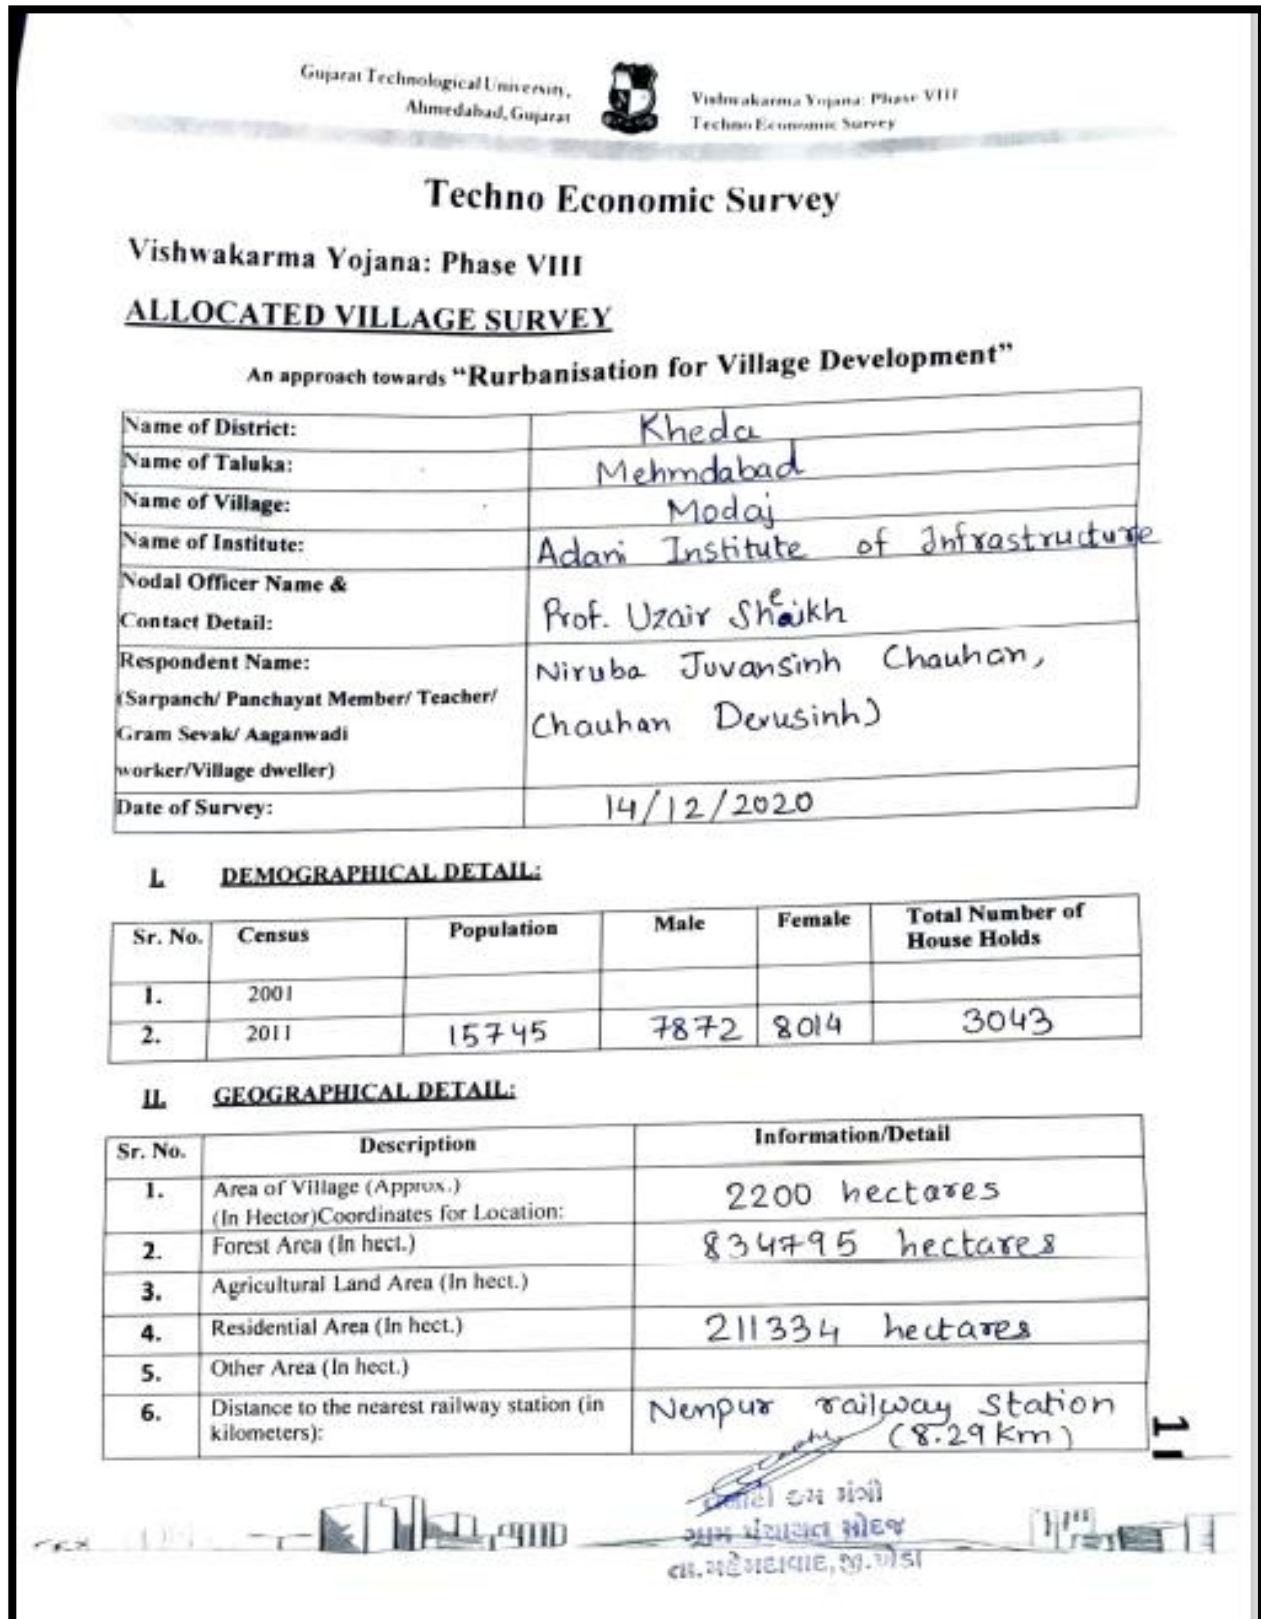 Gujarat Technological University,
Ahmedabad, Gujarat
Vishwakarma Yojana: Phase VIII
Techno Economic Survey
Techno Economic Survey
Vishwakarma Yojana: Phase VIII
ALLOCATED VILLAGE SURVEY
An approach towards “Rurbanisation for Village Development”
Name of District: Kheda
Name of Taluka: Mehmdabad
Name of Village: Modaj
Name of Institute: Adani Institute of Infrastructure
Nodal Officer Name &
Contact Detail: Prof. Uzair Sheikh
Respondent Name: Niruba Juvansinh Chauhan,
(Sarpanch/ Panchayat Member/ Teacher/ Chauhan Devusinh)
Gram Sevak/ Aaganwadi
worker/Village dweller)
Date of Survey: 14/12/2020
I. DEMOGRAPHICAL DETAIL:
Sr. No. Census Population Male Female Total Number of
House Holds
1. 2001
2. 2011 15745 7872 8014 3043
II. GEOGRAPHICAL DETAIL:
Sr. No. Description Information/Detail
1. Area of Village (Approx.) 2200 hectares
(In Hector)Coordinates for Location:
2. Forest Area (In hect.) 834795 hectares
3. Agricultural Land Area (In hect.)
4. Residential Area (In hect.) 211334 hectares
5. Other Area (In hect.)
6. Distance to the nearest railway station (in Nenpur railway station
kilometers): (8.29 km)
તલાટી કમ મંત્રી
ગ્રામ પંચાયત મોદજ
તા.મહેમદાવાદ, જી.ખેડા